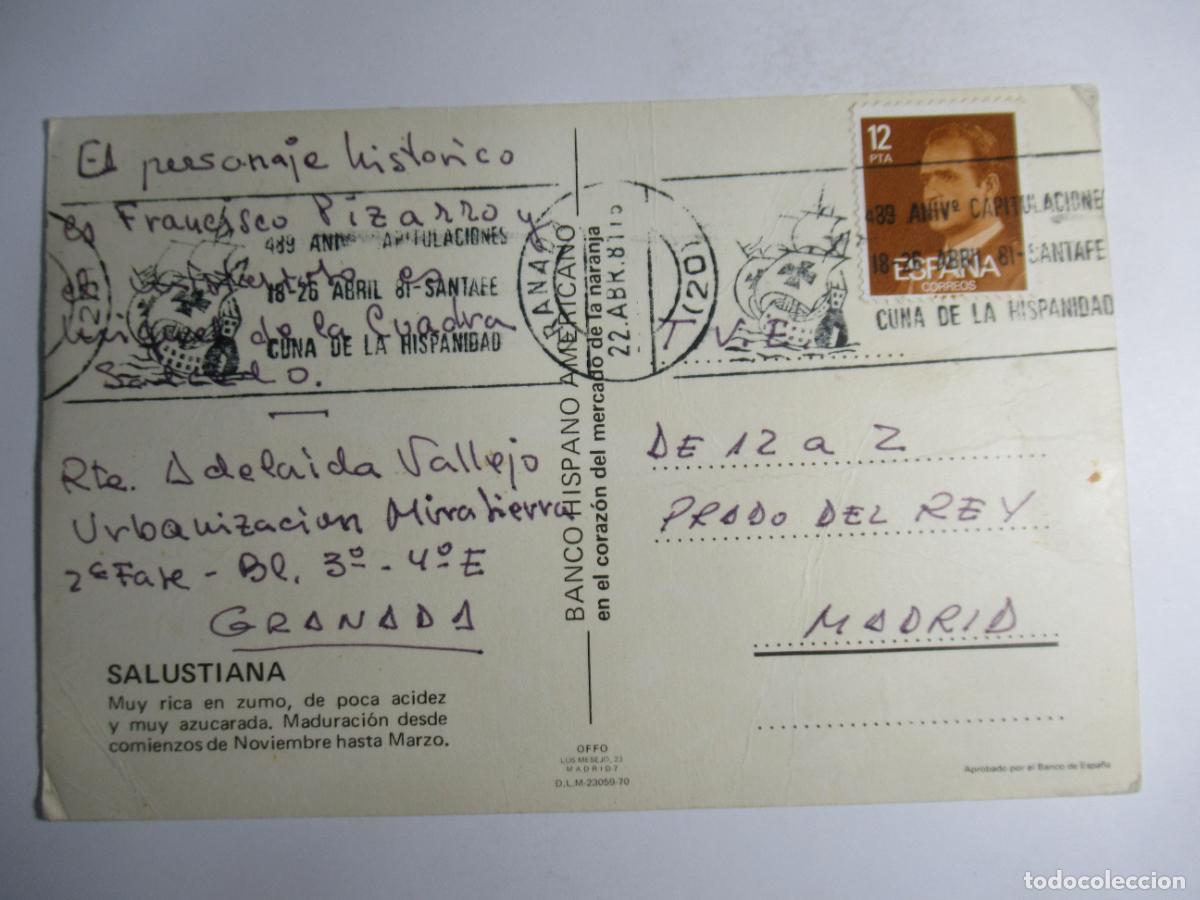 El personaje historico
es Francisco Pizarro y
es
Miguel de la Cuadra
Salcedo.
Rte. Adelaida Vallejo
Urbanizacion Miratierra
2ª Fase - Bl. 3º - 4º E
GRANADA
SALUSTIANA
Muy rica en zumo, de poca acidez
y muy azucarada. Maduración desde
comienzos de Noviembre hasta Marzo.
489 ANIVº CAPITULACIONES
18-26 ABRIL 81-SANTAFE
CUNA DE LA HISPANIDAD
GRANADA
22.ABR.81
(20)
BANCO HISPANO AMERICANO
en el corazón del mercado de la naranja
OFFO
LUIS MESEJO, 23
MADRID-7
D.L.M-23059-70
12
PTA
ESPAÑA
CORREOS
489 ANIVº CAPITULACIONE
18-26 ABRIL 81-SANTAFE
CUNA DE LA HISPANIDAD
T.V.E.
DE 12 a 2
PRADO DEL REY
MADRID
Aprobado por el Banco de España
todocoleccion